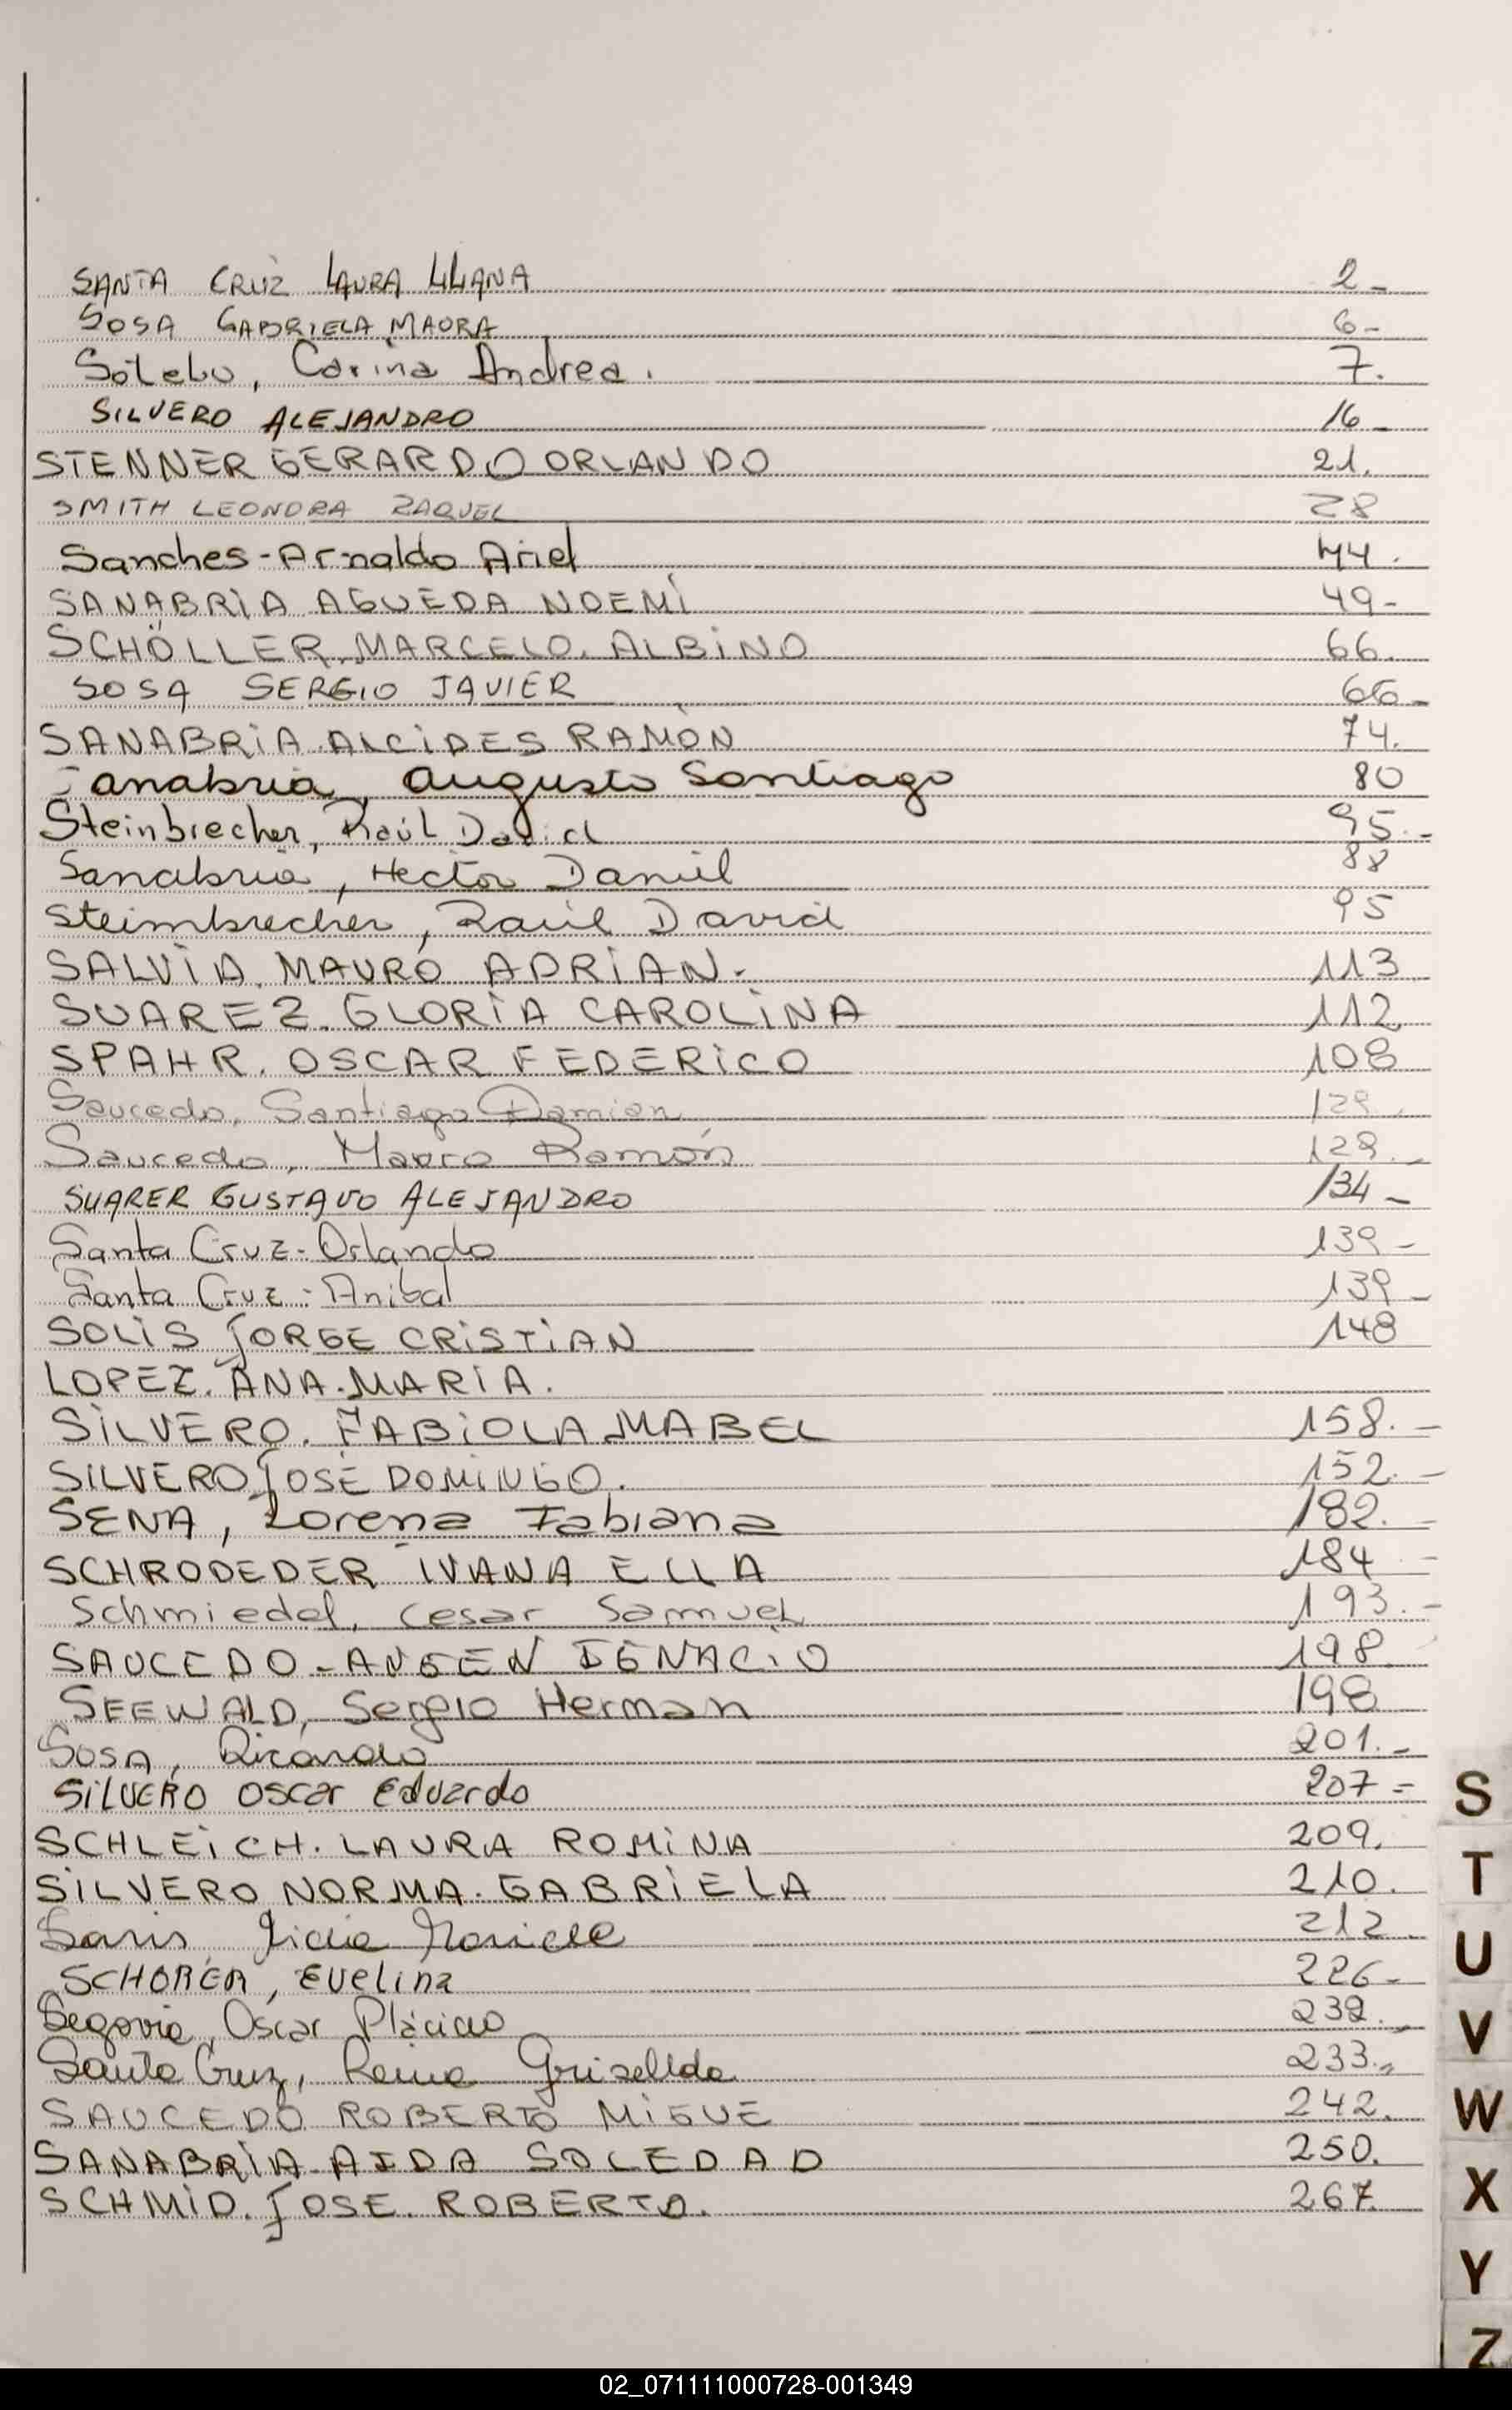 SANTA CRUZ LAURA LILIANA 2-
SOSA GABRIELA MAORA 6-
Sotelo, Carina Andrea. 7.
SILVERO ALEJANDRO 16-
STENNER GERARDO ORLANDO 21.
SMITH LEONORA RAQUEL 28
Sanches-Arnaldo Ariel 44.
SANABRIA AGUEDA NOEMÍ 49-
SCHÖLLER. MARCELO. ALBINO 66.
SOSA SERGIO JAVIER 66-
SANABRIA. ALCIDES RAMÓN 74.
Sanabria, Augusto Santiago 80
Steinbrecher, Raúl David 95.-
Sanabria, Hector Daniel 88
Steimbrecher, Raúl David 95
SALVIA. MAURO ADRIAN- 113
SUAREZ. GLORIA CAROLINA 112
SPAHR. OSCAR FEDERICO 108
Saucedo, Santiago Damian 129
Saucedo, Marco Ramón 129.-
SUARER GUSTAVO ALEJANDRO 134-
Santa Cruz-Orlando 139-
Santa Cruz-Anibal 139-
SOLIS JORGE CRISTIAN 148
LOPEZ. ANA. MARIA.
SILVERO. FABIOLA MABEL 158.-
SILVERO JOSÉ DOMINGO. 152.-
SENA, Lorena Fabiana 182.-
SCHRODEDER IVANA ELLA 184-
Schmiedel, Cesar Samuel 193.-
SAUCEDO-ANGEN IGNACIO 198
SEEWALD, Sergio Herman 198
SOSA, Ricardo 201.-
SILVERO Oscar Eduardo 207=
SCHLEICH. LAURA ROMINA 209.
SILVERO NORMA. GABRIELA 210.
212
SCHORER, Evelina 226-
Segovia, Oscar Plácido 232.-
Santa Cruz, Reina Griselda 233.-
SAUCEDO ROBERTO MIGUE 242.
SANABRIA-AIDA SOLEDAD 250.
SCHMID. JOSE. ROBERTO. 267.
S
T
U
V
W
X
Y
Z
02_071111000728-001349